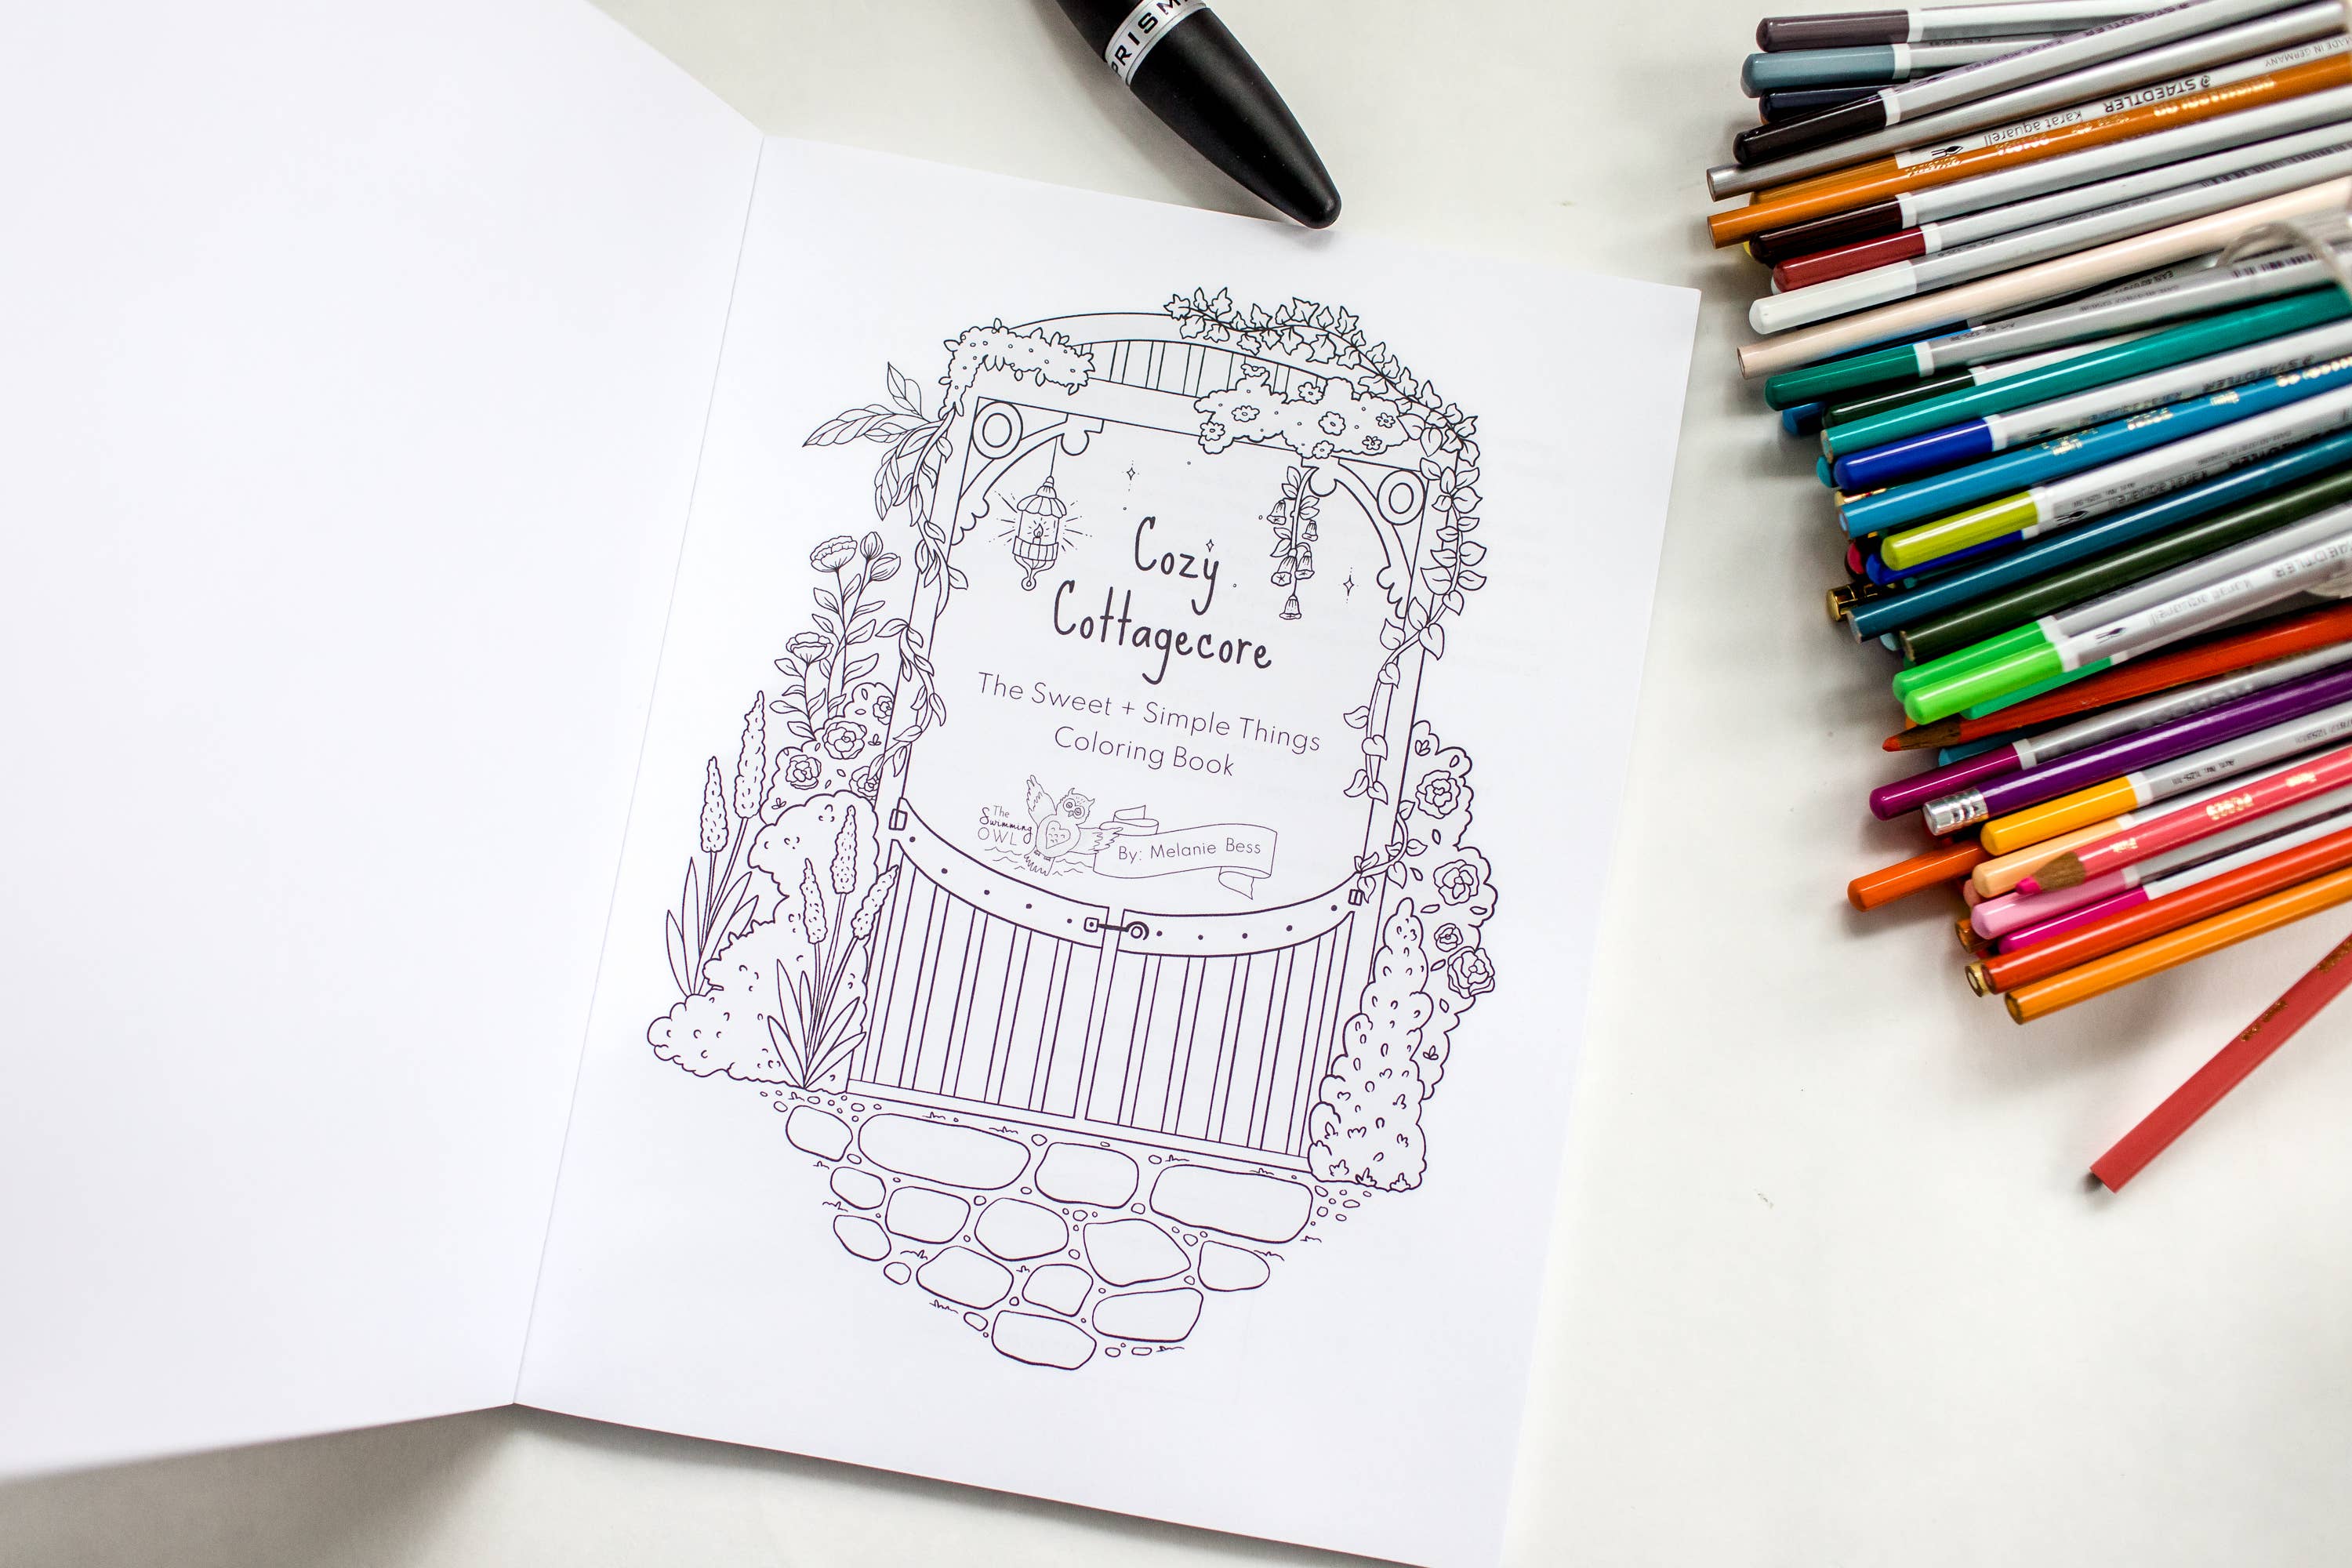 PRISM
Cozy
Cottagecore
The Sweet + Simple Things
Coloring Book
The
Swimming
OWL
By: Melanie Bess
MADE IN GERMANY
STAEDTLER
karat aquarell
STAEDTLER
karat aquarell